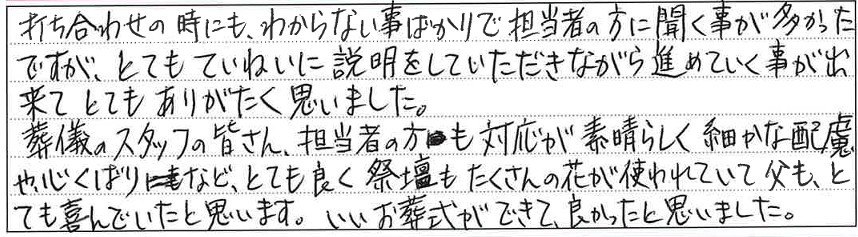 打ち合わせの時にも、わからない事ばかりで担当者の方に聞く事が多かった
ですが、とてもていねいに説明をしていただきながら進めていく事が出
来てとてもありがたく思いました。
葬儀のスタッフの皆さん、担当者の方も対応が素晴らしく細かな配慮
や、心くばりなど、とても良く祭壇もたくさんの花が使われていて父も、と
ても喜んでいたと思います。いいお葬式ができて、良かったと思いました。